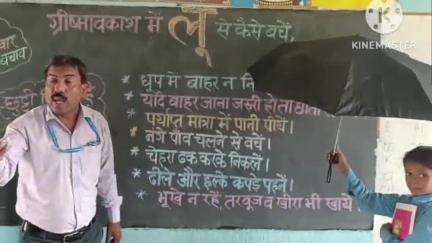 ग्रीष्मावकाश में लू से कैसे बचें,
KINEMASTER
बचाव
* धूप मे बाहर न नि
* यदि बाहर जाना जरूरी हो तो छाता
* पर्याप्त मात्रा में पानी पीयें।
* नंगे पाव चलने से बचें।
* चेहरा ढक करके निकलें।
* ढीले और हल्के कपड़े पहनें।
* भूखे न रहें, तरबूज व खीरा भी खायें।